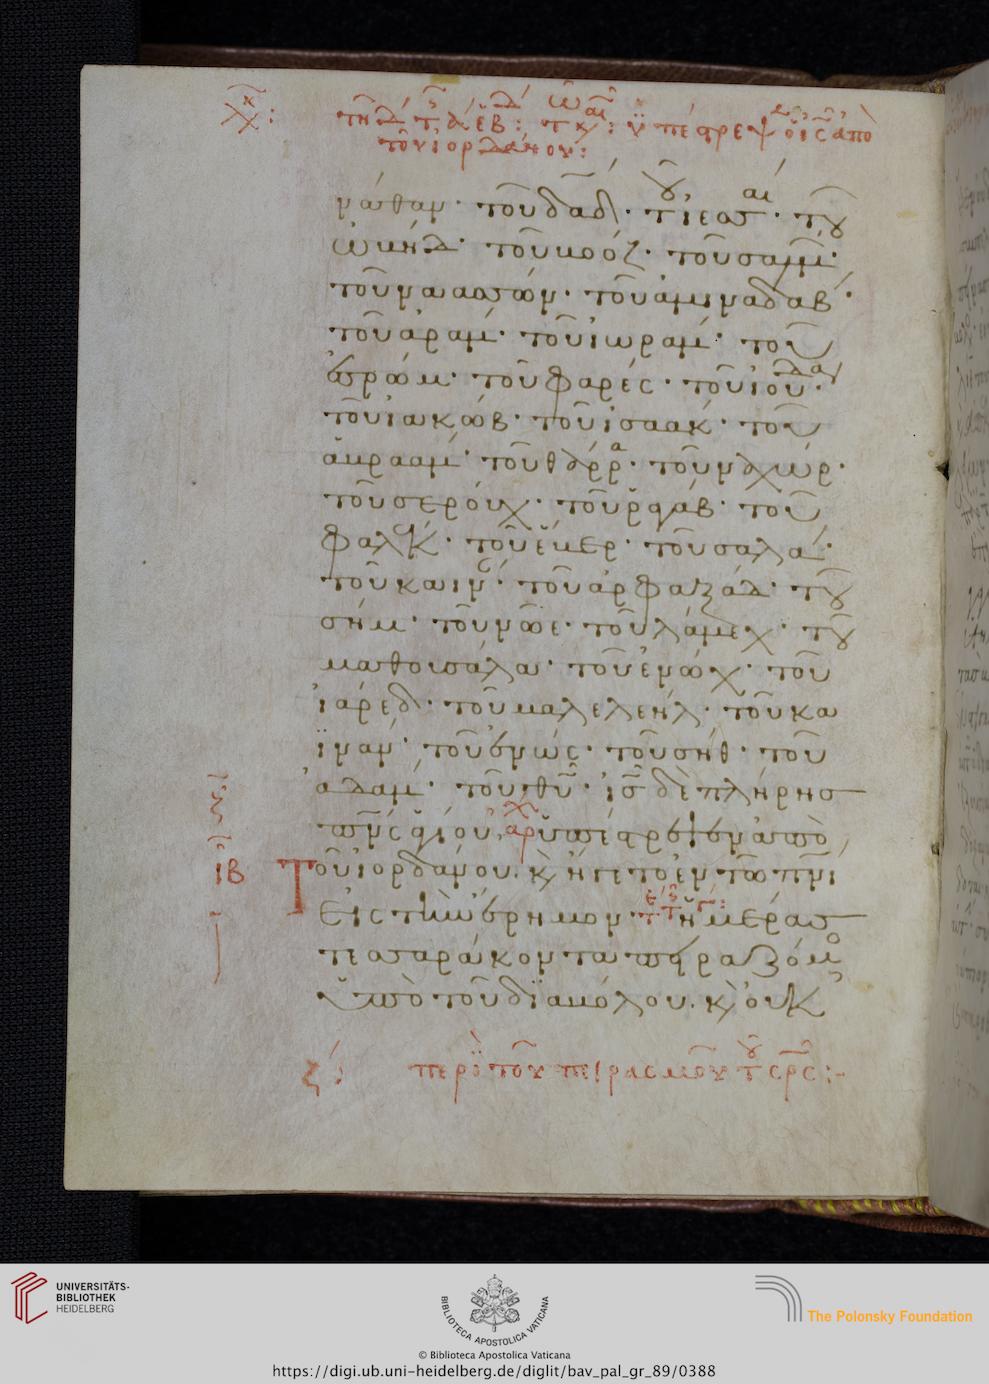 τοῦ ἰορδάνου:
ναθάν· τοῦ δαδ· τ ἰεσσαί· τοῦ
ὠβήδ· τοῦ βοόζ· τοῦ σαλμ·
τοῦ ναασσών· τοῦ ἀμιναδάβ·
τοῦ ἀράμ· τοῦ ἰωράμ· τοῦ
ἐσρώμ· τοῦ φαρές· τοῦ ἰούδα·
τοῦ ἰακώβ· τοῦ ἰσαάκ· τοῦ
ἀβραάμ· τοῦ θάρρα· τοῦ ναχώρ·
τοῦ σερούχ· τοῦ ῥαγάβ· τοῦ
φαλέκ· τοῦ ἔβερ· τοῦ σαλά·
τοῦ καιν· τοῦ ἀρφαξάδ· τοῦ
σήμ· τοῦ νῶε· τοῦ λάμεχ· τοῦ
μαθουσάλα· τοῦ ἐνώχ· τοῦ
ἰάρεδ· τοῦ μαλελεήλ· τοῦ κα
ϊνάν· τοῦ ἐνώς· τοῦ σήθ· τοῦ
ἀδάμ· τοῦ θυ· ις δὲ πλήρης
πνς ἁγίου, ὑπέστρεψεν ἀπὸ
ιβ Τοῦ ἰορδάνου. κ ἤγετο ἐν τῶ πνι
εἰς τὴν ἔρημον· ἡμέρας
τεσσαράκοντα πειραζόμενος
ὑπὸ τοῦ διαβόλου. κ οὐκ
ζ: περὶ τοῦ πειρασμοῦ τ σρς:-
UNIVERSITÄTS-
BIBLIOTHEK
HEIDELBERG
BIBLIOTECA APOSTOLICA VATICANA
The Polonsky Foundation
© Biblioteca Apostolica Vaticana
https://digi.ub.uni-heidelberg.de/diglit/bav_pal_gr_89/0388